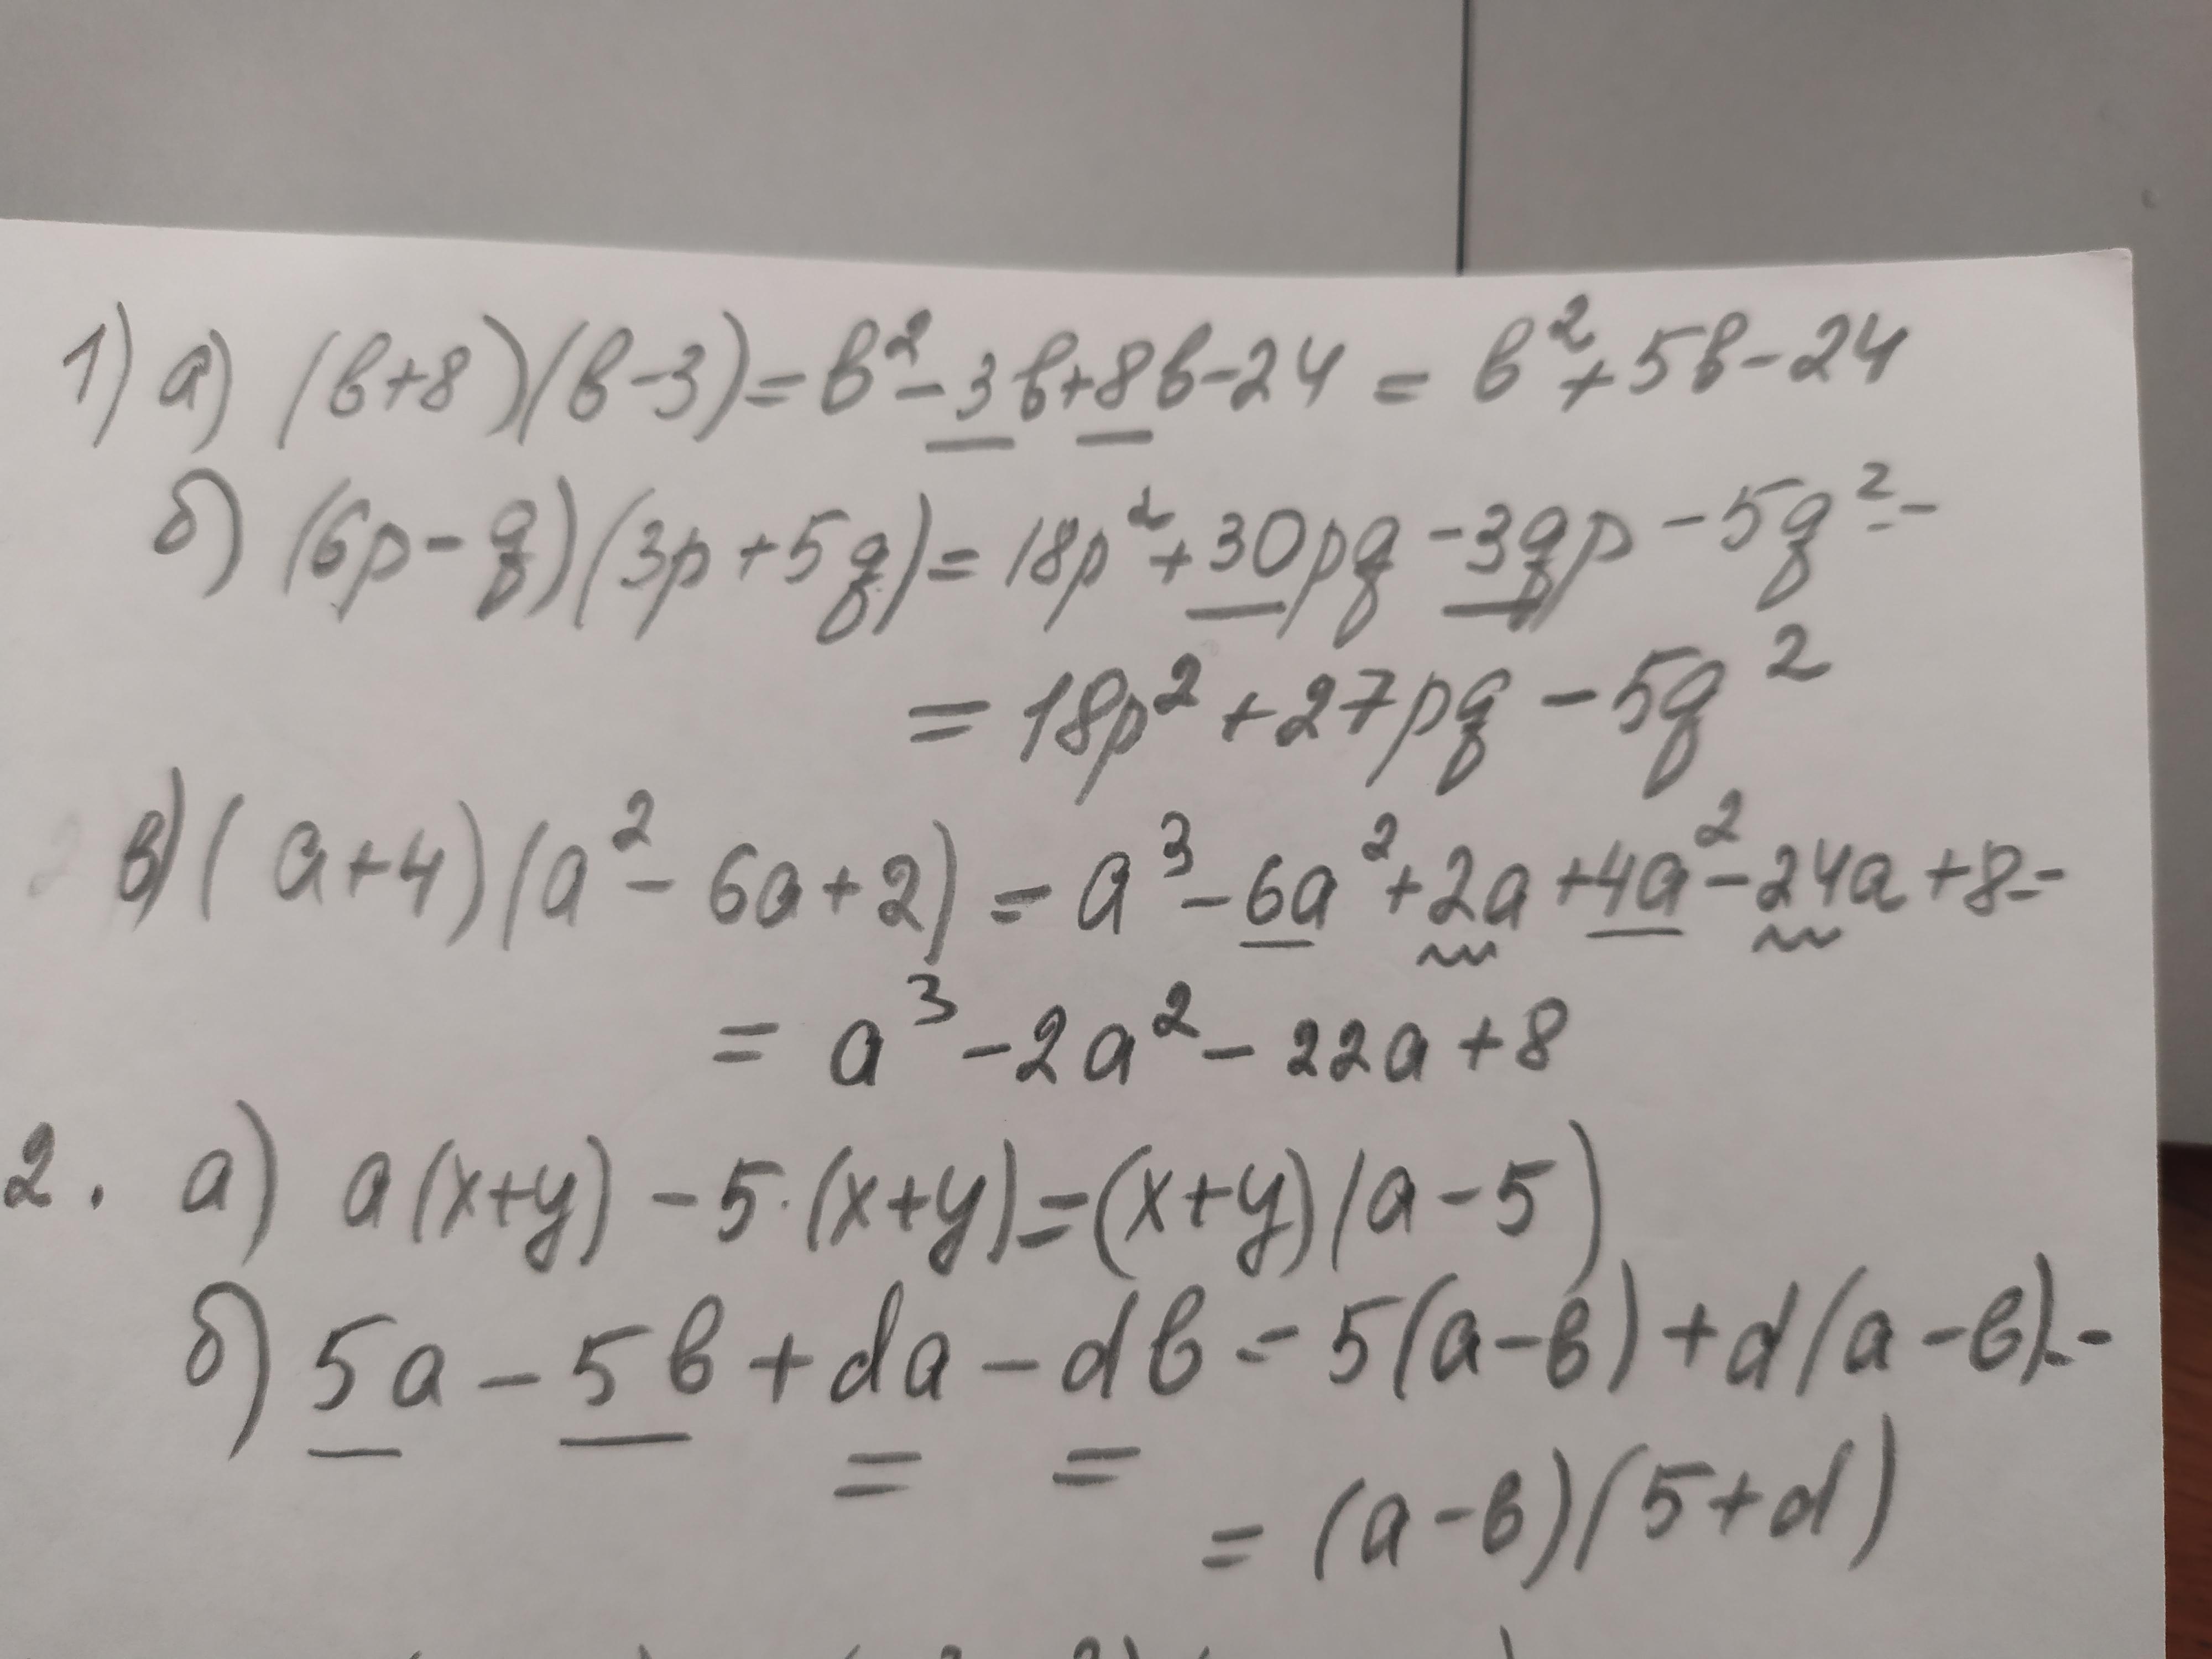 1) а) (в+8)(в-3)=в²-3в+8в-24 = в²+5в-24
б) (6p-q)(3p+5q)=18p²+30pq-3qp-5q²=
=18p²+27pq-5q²
в) (a+4)(a²-6a+2)=a³-6a²+2a+4a²-24a+8=
= a³-2a²-22a+8
2. а) a(x+y)-5·(x+y)=(x+y)(a-5)
б) 5a-5в+da-dв=5(a-в)+d(a-в)=
=(a-в)(5+d)